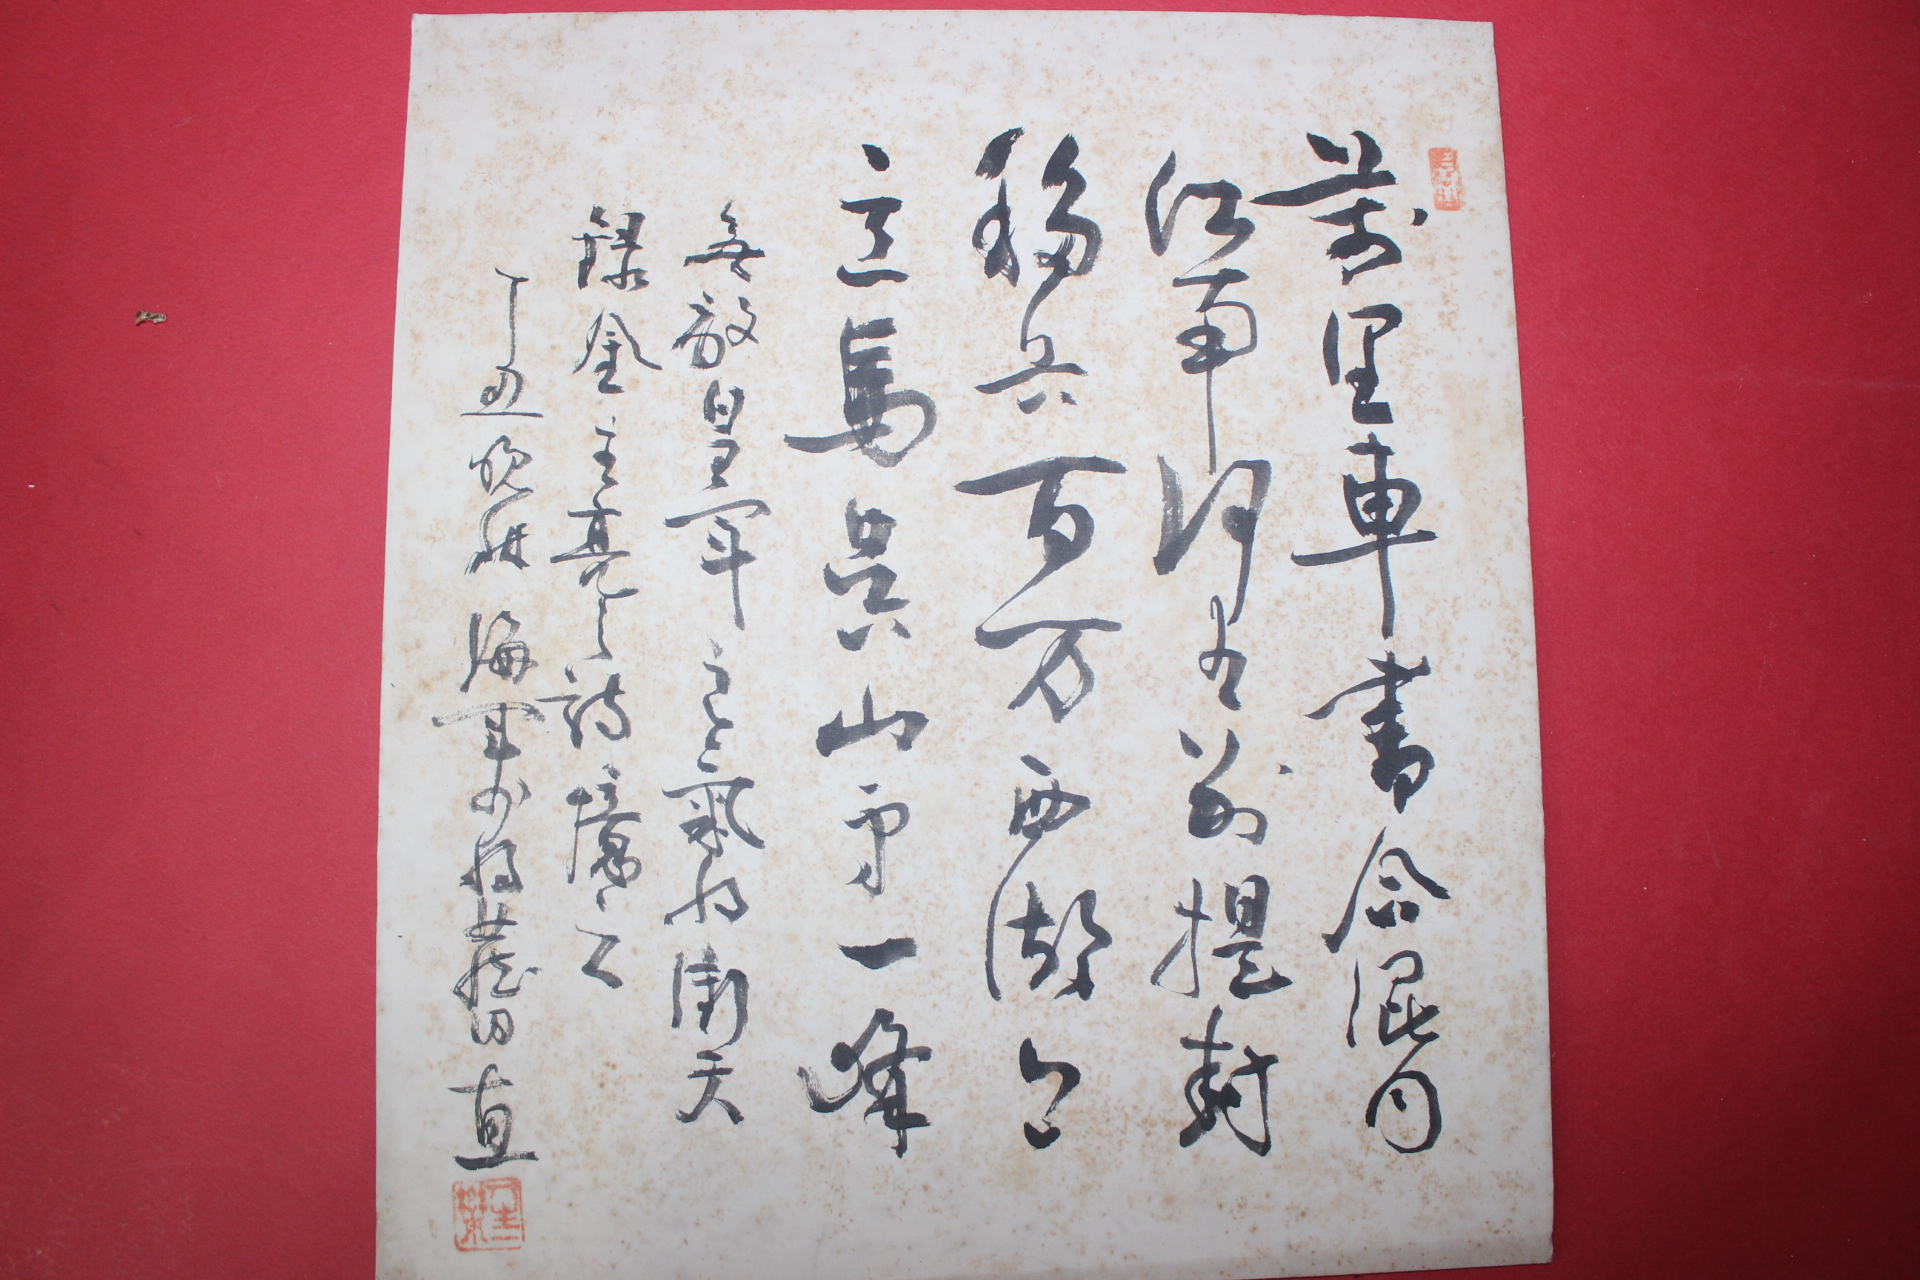 萬里車書合混同
江南有別提封
移兵百万西湖上
立馬呉山第一峰
無敵皇軍之氣将衝天
録金主亮之詩
丁丑晩秋 海軍少将 直